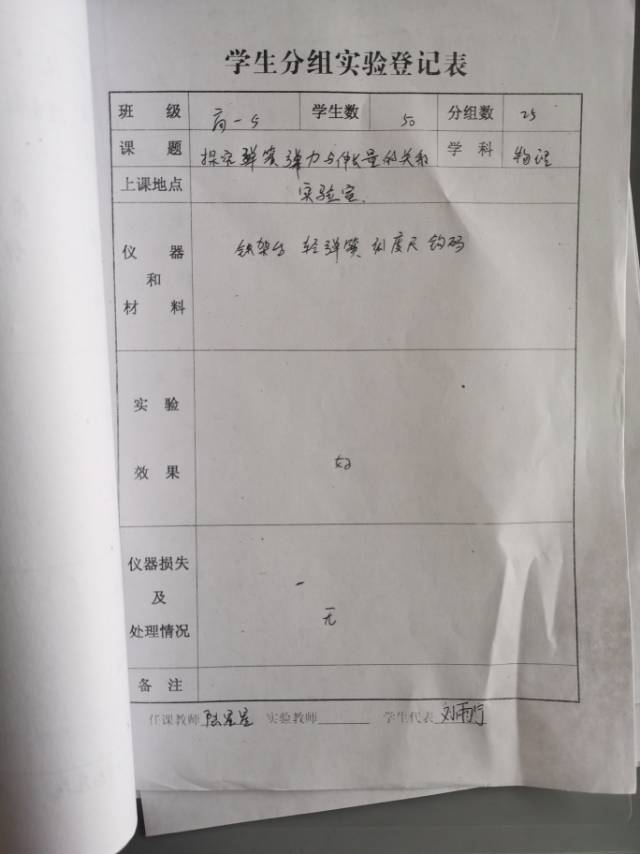 学生分组实验登记表
班 级 高一5 学生数 50 分组数 25
课 题 探究弹簧弹力与伸长量的关系 学 科 物理
上课地点 实验室.
仪 器 铁架台 轻弹簧 刻度尺 钩码
和
材 料
实 验
效 果 好
仪器损失
及
处理情况 无
备 注
任课教师 实验教师 学生代表